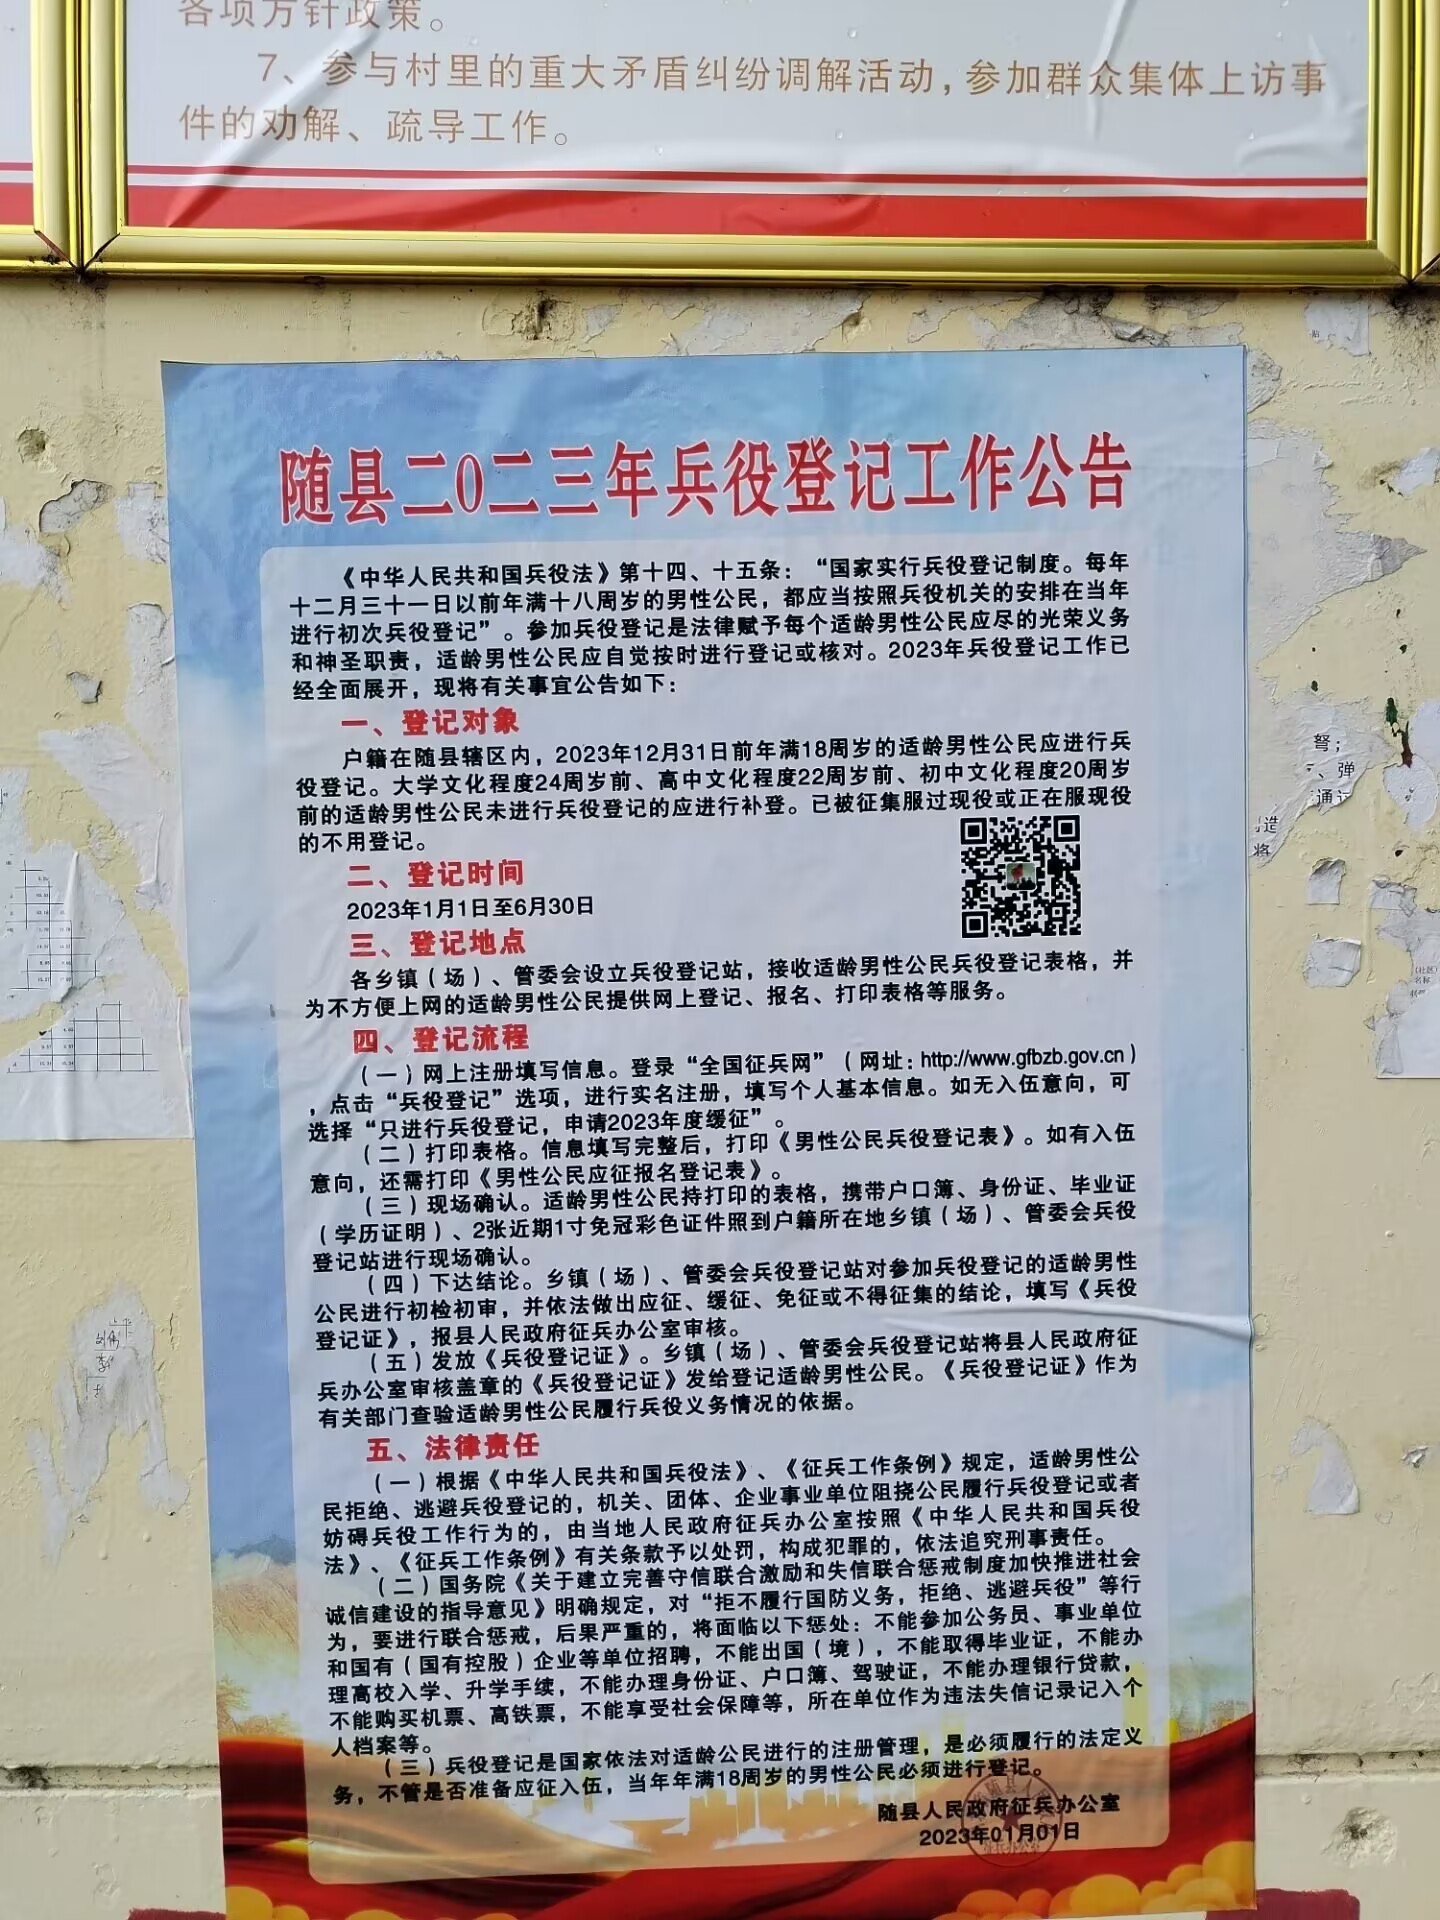 各项方针政策。
7、参与村里的重大矛盾纠纷调解活动，参加群众集体上访事
件的劝解、疏导工作。
随县二0二三年兵役登记工作公告
《中华人民共和国兵役法》第十四、十五条：“国家实行兵役登记制度。每年
十二月三十一日以前年满十八周岁的男性公民，都应当按照兵役机关的安排在当年
进行初次兵役登记”。参加兵役登记是法律赋予每个适龄男性公民应尽的光荣义务
和神圣职责，适龄男性公民应自觉按时进行登记或核对。2023年兵役登记工作已
经全面展开，现将有关事宜公告如下：
一、登记对象
户籍在随县辖区内，2023年12月31日前年满18周岁的适龄男性公民应进行兵
役登记。大学文化程度24周岁前、高中文化程度22周岁前、初中文化程度20周岁
前的适龄男性公民未进行兵役登记的应进行补登。已被征集服过现役或正在服现役
的不用登记。
二、登记时间
2023年1月1日至6月30日
三、登记地点
各乡镇（场）、管委会设立兵役登记站，接收适龄男性公民兵役登记表格，并
为不方便上网的适龄男性公民提供网上登记、报名、打印表格等服务。
四、登记流程
（一）网上注册填写信息。登录“全国征兵网”（网址：http://www.gfbzb.gov.cn）
，点击“兵役登记”选项，进行实名注册，填写个人基本信息。如无入伍意向，可
选择“只进行兵役登记，申请2023年度缓征”。
（二）打印表格。信息填写完整后，打印《男性公民兵役登记表》。如有入伍
意向，还需打印《男性公民应征报名登记表》。
（三）现场确认。适龄男性公民持打印的表格，携带户口簿、身份证、毕业证
（学历证明）、2张近期1寸免冠彩色证件照到户籍所在地乡镇（场）、管委会兵役
登记站进行现场确认。
（四）下达结论。乡镇（场）、管委会兵役登记站对参加兵役登记的适龄男性
公民进行初检初审，并依法做出应征、缓征、免征或不得征集的结论，填写《兵役
登记证》，报县人民政府征兵办公室审核。
（五）发放《兵役登记证》。乡镇（场）、管委会兵役登记站将县人民政府征
兵办公室审核盖章的《兵役登记证》发给登记适龄男性公民。《兵役登记证》作为
有关部门查验适龄男性公民履行兵役义务情况的依据。
五、法律责任
（一）根据《中华人民共和国兵役法》、《征兵工作条例》规定，适龄男性公
民拒绝、逃避兵役登记的，机关、团体、企业事业单位阻挠公民履行兵役登记或者
妨碍兵役工作行为的，由当地人民政府征兵办公室按照《中华人民共和国兵役
法》、《征兵工作条例》有关条款予以处罚，构成犯罪的，依法追究刑事责任。
（二）国务院《关于建立完善守信联合激励和失信联合惩戒制度加快推进社会
诚信建设的指导意见》明确规定，对“拒不履行国防义务，拒绝、逃避兵役”等行
为，要进行联合惩戒，后果严重的，将面临以下惩处：不能参加公务员、事业单位
和国有（国有控股）企业等单位招聘，不能出国（境），不能取得毕业证，不能办
理高校入学、升学手续，不能办理身份证、户口簿、驾驶证，不能办理银行贷款，
不能购买机票、高铁票，不能享受社会保障等，所在单位作为违法失信记录记入个
人档案等。
（三）兵役登记是国家依法对适龄公民进行的注册管理，是必须履行的法定义
务，不管是否准备应征入伍，当年年满18周岁的男性公民必须进行登记。
随县人民政府征兵办公室
2023年01月01日
弩；
、弹
通过
造
将